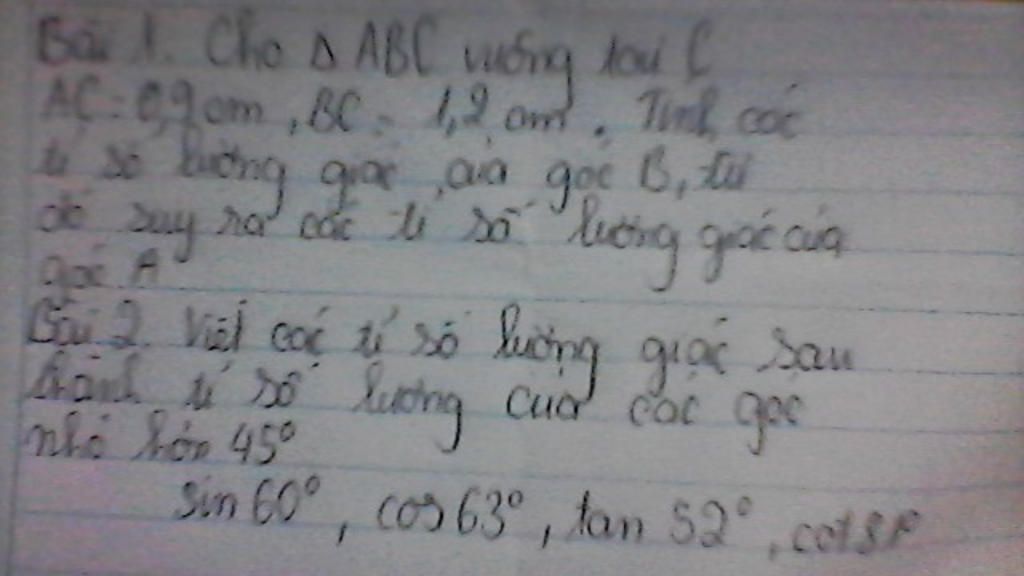 Bài 1. Cho Δ ABC vuông tại C
AC = 0,9 cm, BC = 1,2 cm. Tính các
tỉ số lượng giác của góc B, từ
đó suy ra các tỉ số lượng giác của
góc A
Bài 2. Viết các tỉ số lượng giác sau
thành tỉ số lượng của các góc
nhỏ hơn 45°
sin 60°, cos 63°, tan 52°, cot